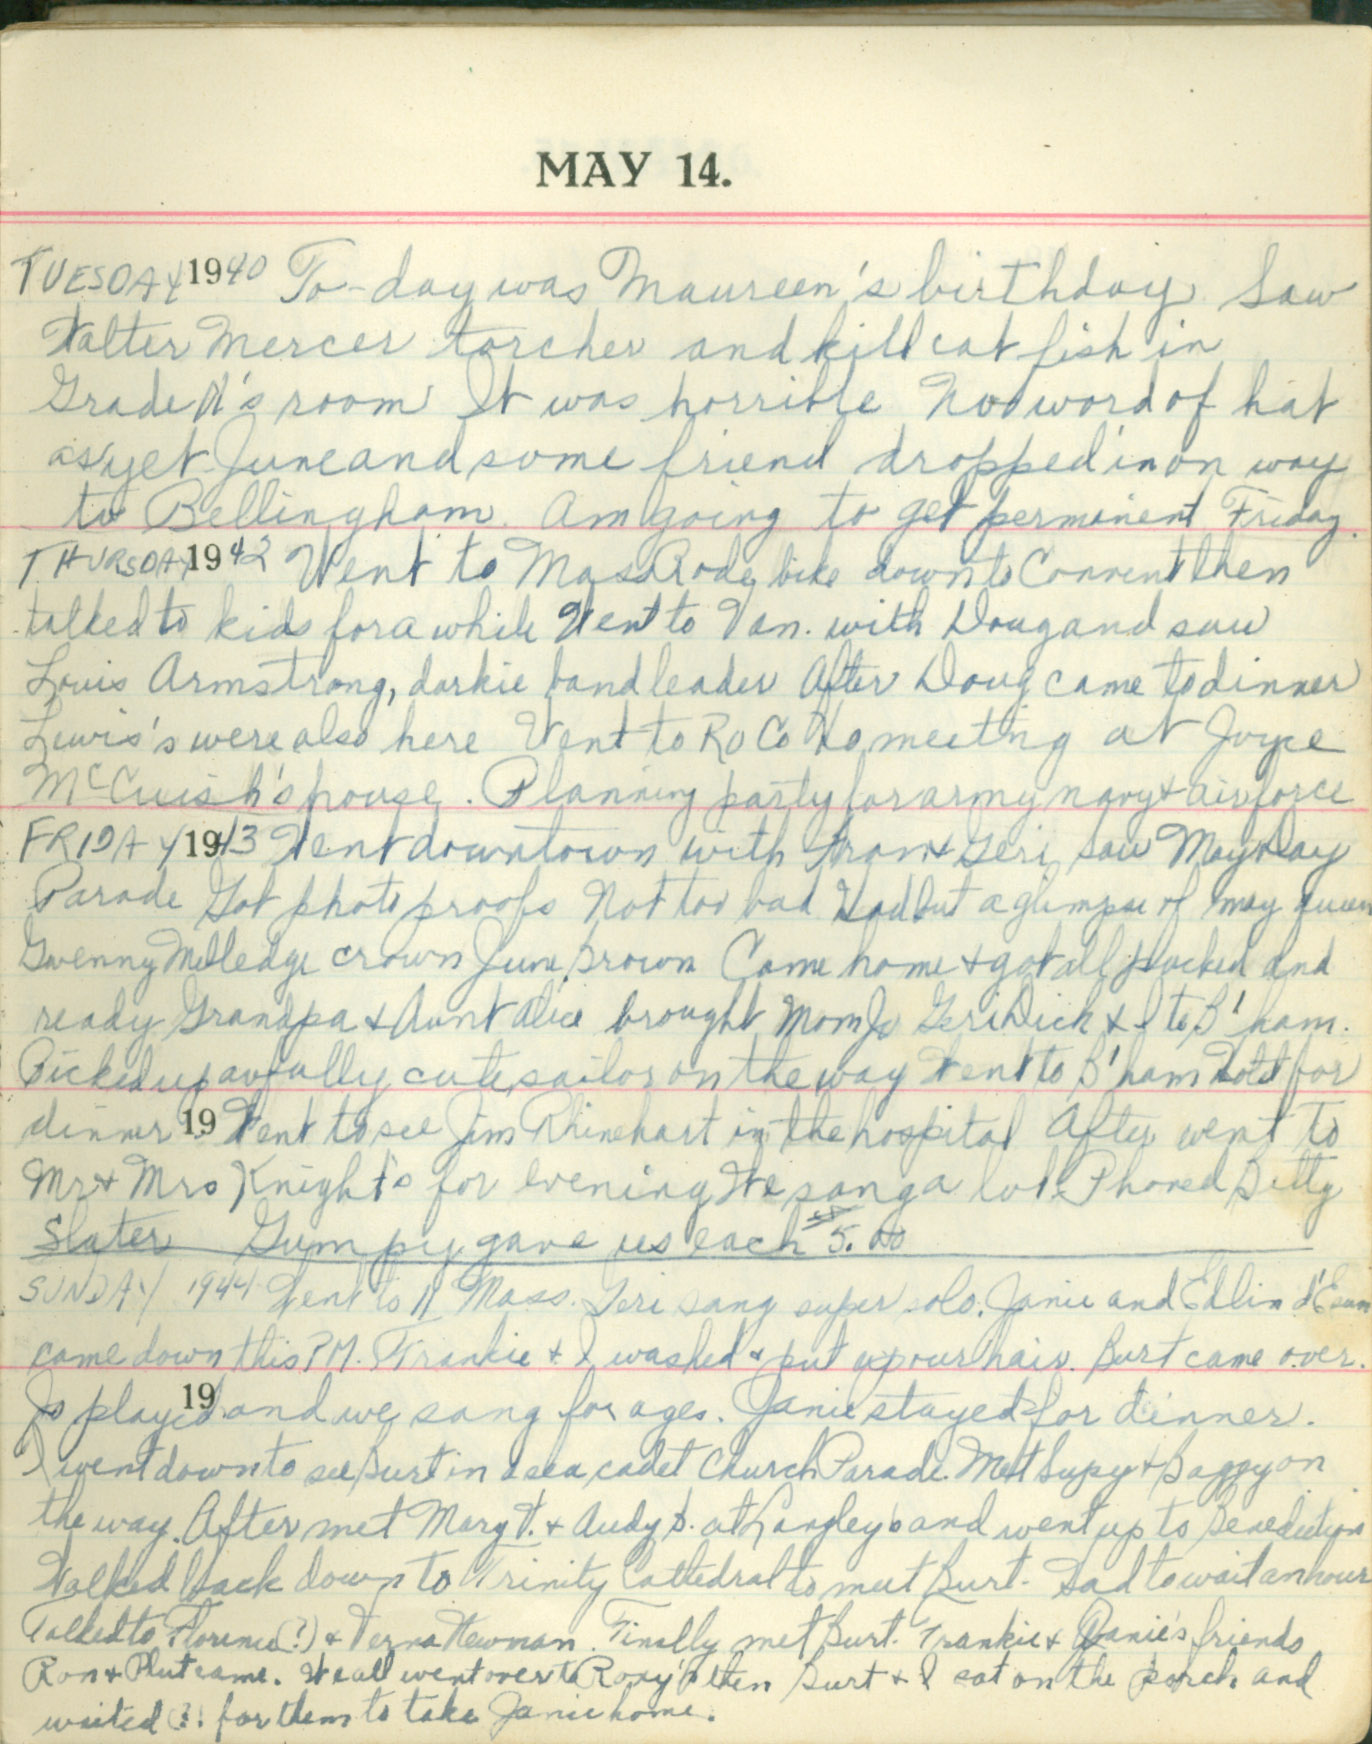 MAY 14.
TUESDAY 1940 To-day was Maureen's birthday. Saw
Walter Mercer torcher and kill cat fish in
Grade 's room It was horrible No word of hat
as yet June and some friend dropped in on way
to Bellingham. Am going to get permanent Friday.
THURSDAY 1942 Went to Mass Rode bike down to Convent then
talked to kids for a while Went to Van. with Doug and saw
Louis Armstrong, darkie band leader After Doug came to dinner
Lewis's were also here Went to RoCo Ho meeting at Joyce
McCuish's house. Planning party for army navy & airforce
FRIDAY 1943 Went downtown with Fran & Geri, saw May Day
Parade Got photo proofs Not too bad Had but a glimpse of may queen
Gwenny Milledge crown June Brown Came home & got all packed and
ready Grandpa & Aunt Alice brought Mom Jo Geri Dick & I to B'ham.
Picked up awfully cute sailor on the way Went to B'ham Hotel for
dinner 19 Went to see Jim Rhinehart in the hospital After went to
Mr & Mrs Knight's for evening We sang a lot. Phoned Betty
Slater Gumpy gave us each $5.00
SUNDAY 1944 Went to 11 Mass. Geri sang super solo. Janie and Edlin d'Esum
came down this P.M. Frankie & I washed & put up our hair. Burt came over.
19
Jo played and we sang for ages. Janie stayed for dinner.
I went down to see Burt in a sea cadet Church Parade. Met Supy & Baggy on
the way. After met Mary T. & Audy S. at Langley's and went up to
Walked back down to Trinity Cathedral to meet Burt. Had to wait an hour
Talked to Florence (?) & Verna Newman. Finally met Burt. Frankie & Janie's friends
Ron & Phut came. We all went over to Roxy's then Burt & I sat on the porch and
waited (?)! for them to take Janie home.